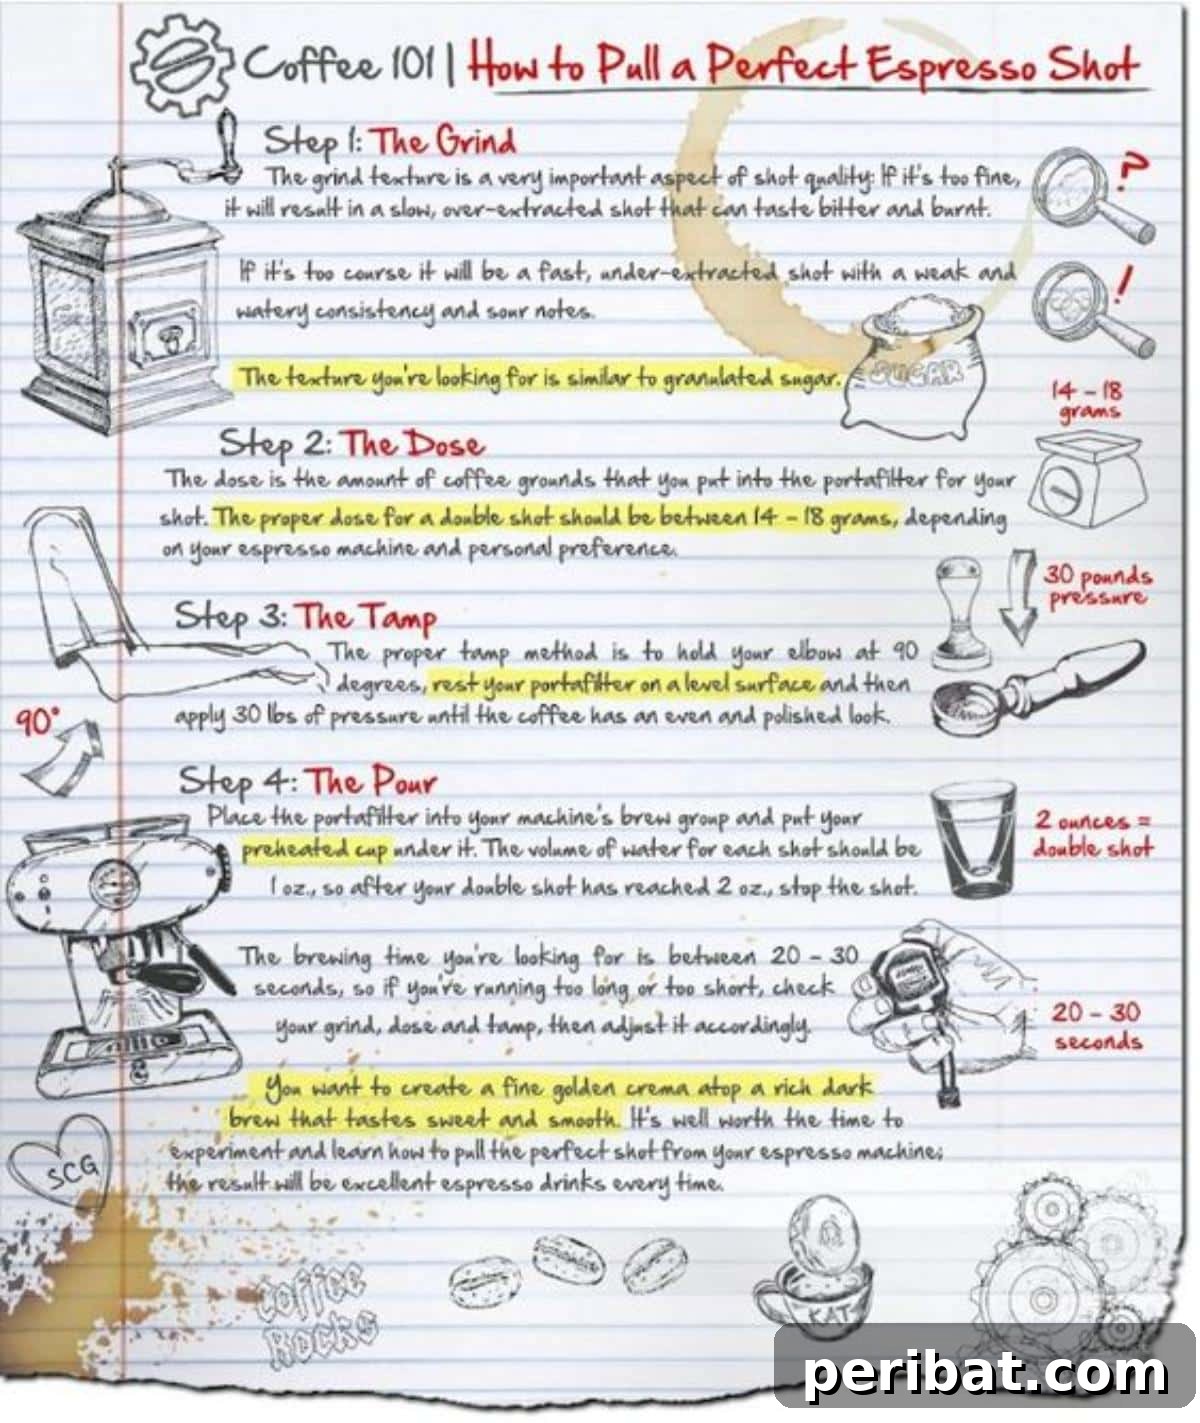 Coffee 101 | How to Pull a Perfect Espresso Shot
Step 1: The Grind
The grind texture is a very important aspect of shot quality: If it's too fine,
it will result in a slow, over-extracted shot that can taste bitter and burnt.
?
If it's too course it will be a fast, under-extracted shot with a weak and
watery consistency and sour notes.
!
The texture you're looking for is similar to granulated sugar.
SUGAR
14 - 18
grams
Step 2: The Dose
The dose is the amount of coffee grounds that you put into the portafilter for your
shot. The proper dose for a double shot should be between 14 - 18 grams, depending
on your espresso machine and personal preference.
30 pounds
pressure
Step 3: The Tamp
The proper tamp method is to hold your elbow at 90
degrees, rest your portafilter on a level surface and then
apply 30 lbs of pressure until the coffee has an even and polished look.
90°
Step 4: The Pour
Place the portafilter into your machine's brew group and put your
preheated cup under it. The volume of water for each shot should be
1 oz., so after your double shot has reached 2 oz., stop the shot.
2 ounces =
double shot
The brewing time you're looking for is between 20 - 30
seconds, so if you're running too long or too short, check
your grind, dose and tamp, then adjust it accordingly.
20 - 30
seconds
You want to create a fine golden crema atop a rich dark
brew that tastes sweet and smooth. It's well worth the time to
experiment and learn how to pull the perfect shot from your espresso machine;
the result will be excellent espresso drinks every time.
SCG
Coffee
Rocks
KAT
peribat.com